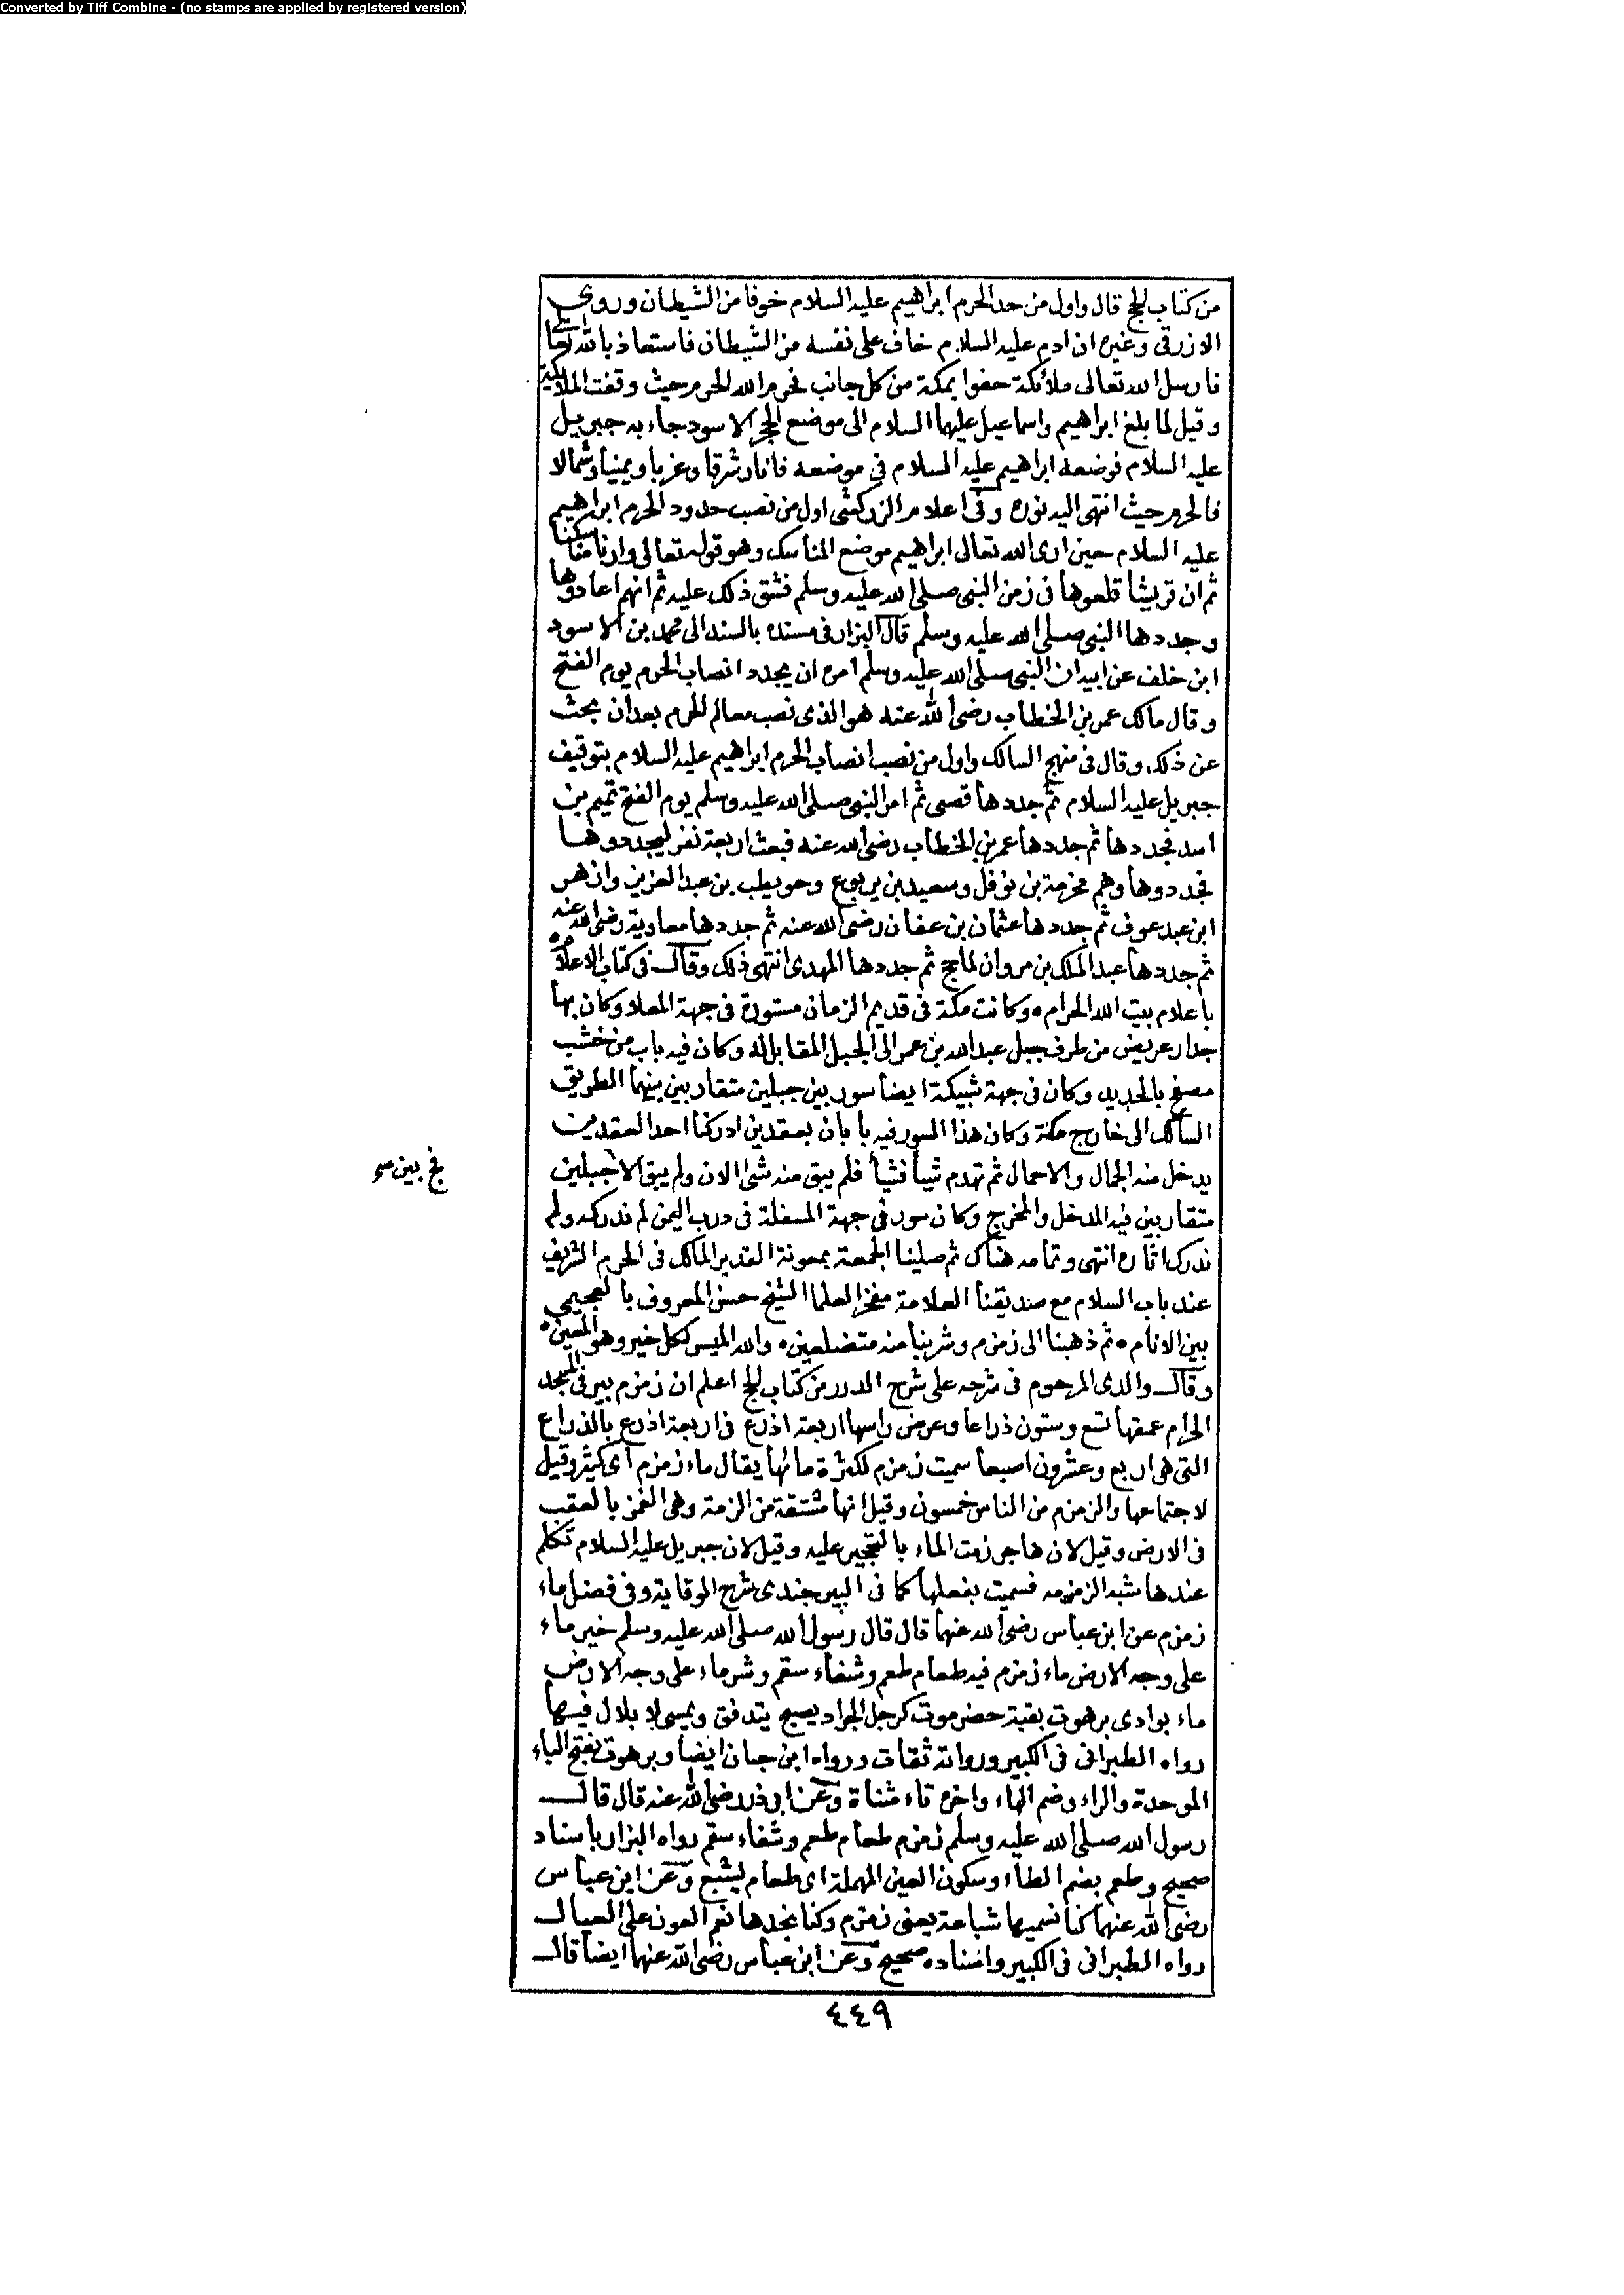 Converted by Tiff Combine - (no stamps are applied by registered version)
من كتاب الحج قال واول من حد الحرم ابراهيم عليه السلام خوفا من الشيطان وروى
الازرقى وغيره ان ادم عليه السلام خاف على نفسه من الشيطان فاستعاذ بالله تعالى
فارسل الله تعالى ملائكة حفوا بمكة من كل جانب فحرم الله الحرم حيث وقفت الملائكة
وقيل لما بلغ ابراهيم واسماعيل عليهما السلام الى موضع الحجر الاسود جاء به جبريل
عليه السلام فوضعه ابراهيم عليه السلام فى موضعه فانار شرقا وغربا ويمينا وشمالا
فالحرم حيث انتهى اليه نوره وفى اعلام الزركشى اول من نصب حدود الحرم ابراهيم
عليه السلام حين ارى الله تعالى ابراهيم موضع المناسك وهو قوله تعالى وارنا مناسكنا
ثم ان قريشا قلعوها فى زمن النبى صلى الله عليه وسلم فشق ذلك عليه ثم انهم اعادوها
وجددها النبى صلى الله عليه وسلم قال البزار فى مسنده بالسند الى محمد بن الاسود
ابن خلف عن ابيه ان النبى صلى الله عليه وسلم امره ان يجدد انصاب الحرم يوم الفتح
وقال مالك عمر بن الخطاب رضى الله عنه هو الذى نصب معالم الحرم بعد ان بحث
عن ذلك وقال فى منهج السالك واول من نصب انصاب الحرم ابراهيم عليه السلام بتوقيف
جبريل عليه السلام ثم جددها قصى ثم امر النبى صلى الله عليه وسلم يوم الفتح تميم بن
اسد فجددها ثم جددها عمر بن الخطاب رضى الله عنه فبعث اربعة نفر ليجددوها
فجددوها وهم مخرمة بن نوفل وسعيد بن يربوع وحويطب بن عبد العزيز وازهر
ابن عبد عوف ثم جددها عثمان بن عفان رضى الله عنه ثم جددها معاوية رضى الله عنه
ثم جددها عبد الملك بن مروان لما حج ثم جددها المهدى انتهى ذلك وقال فى كتاب الاعلام
باعلام بيت الله الحرام وكانت مكة فى قديم الزمان مستورة فى جهة المعلا وكان بها
جدار عريض من طرف جبل عبد الله بن عمر الى الجبل المقابل له وكان فيه باب من خشب
مصفح بالحديد وكان فى جهة شبيكة ايضا سور بين جبلين متقاربين بينهما الطريق
السالك الى خارج مكة وكان هذا السور فيه بابان بعقدين ادركنا احد العقدين
يدخل منه الجمال والاحمال ثم تهدم شيأ فشيأ فلم يبق منه شئ الان ولم يبق الا جبلين
فج بين صح
متقاربين فيه المدخل والمخرج وكان سور فى جهة المسفلة فى درب اليمن لم ندركه ولم
ندرك اثاره انتهى وتمامه هناك ثم صلينا الجمعة بمعونة القدير المالك فى الحرم الشريف
عند باب السلام مع صديقنا العلامة مفخر العلما الشيخ حسن المعروف بالعجيمى
بين الانام ثم ذهبنا الى زمزم وشربنا منه متضلعين والله الميسر لكل خير وهو المعين
وقال والدى المرحوم فى شرحه على شرح الدرر من كتاب الحج اعلم ان زمزم بير فى المسجد
الحرام عمقها تسع وستون ذراعا وعرض راسها اربعة اذرع فى اربعة اذرع بالذراع
التى هى اربع وعشرون اصبعا سميت زمزم لكثرة مائها يقال ماء زمزم اى كثير وقيل
لاجتماعها والزمزم من الناس خمسون وقيل انها مشتقة من الزمة وهى الغمز بالعقب
فى الارض وقيل لان هاجر زمت الماء بالتحجير عليه وقيل لان جبريل عليه السلام تكلم
عندها شبه الزمزمه فسميت بفعلها كما فى البيرجندى شرح الوقاية وفى فضل ماء
زمزم عن ابن عباس رضى الله عنهما قال قال رسول الله صلى الله عليه وسلم خير ماء
على وجه الارض ماء زمزم فيه طعام طعم وشفاء سقم وشر ماء على وجه الارض
ماء بوادى برهوت بقبة حضرموت كرجل الجراد يصبح يتدفق ويمسى لا بلال فيها
رواه الطبرانى فى الكبير وروانه ثقات ورواه ابن حبان ايضا وبرهوت بفتح الباء
الموحدة والراء وضم الهاء واخره تاء مثناة وعن ابى ذر رضى الله عنه قال قال
رسول الله صلى الله عليه وسلم زمزم طعام طعم وشفاء سقم رواه البزار باسناد
صحيح وطعم بضم الطاء وسكون العين المهملة اى طعام يشبع وعن ابن عباس
رضى الله عنهما كنا نسميها شباعة يعنى زمزم وكنا نجدها نعم العون على العيال
رواه الطبرانى فى الكبير واسناده صحيح وعن ابن عباس رضى الله عنهما ايضا قال
٤٤٩